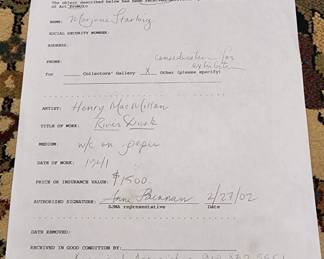 The object described below has been received
NAME: Marjorie Starkey
SOCIAL SECURITY NUMBER:
ADDRESS:
PHONE: consideration for
exhibit
for Collectors' Gallery X Other (please specify)
ARTIST: Henry MacMillan
TITLE OF WORK: River Dusk
MEDIUM: w/c on paper
DATE OF WORK: 1941
PRICE OR INSURANCE VALUE: $1500
AUTHORIZED SIGNATURE: Anne Brennan 2/27/02
SJMA representative Date
DATE REMOVED:
RECEIVED IN GOOD CONDITION BY: